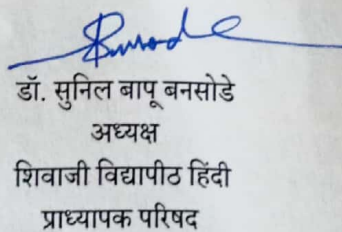 डॉ. सुनिल बापू बनसोडे
अध्यक्ष
शिवाजी विद्यापीठ हिंदी
प्राध्यापक परिषद